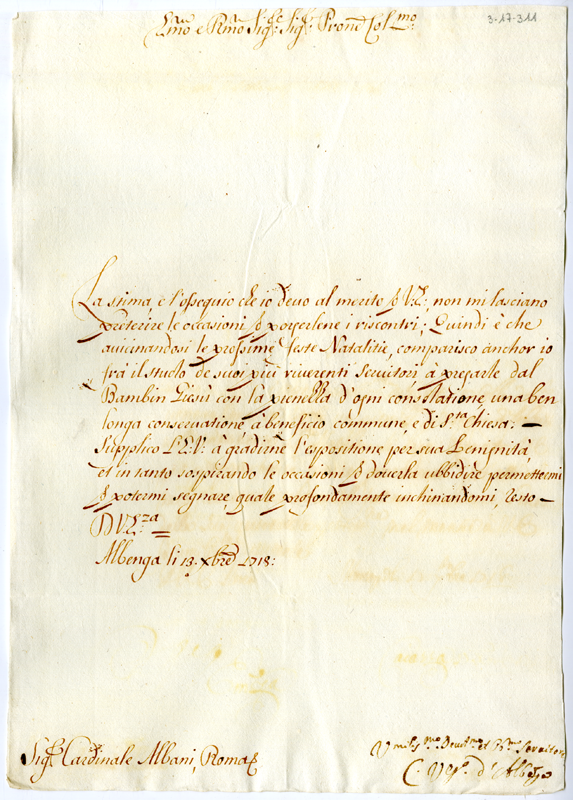 Emo e Rmo Sigr. Sigr. Prone Colmo.
3-17-311
La stima, e l'ossequio che io devo al merito di V.E., non mi lasciano
preterire le occasioni di porgerlene i riscontri; Quindi è che
avicinandosi le prossime feste Natalitie, comparisco anchor io
frà il stuolo de suoi più riverenti Servitori à pregarle dal
Bambin Giesù con la pienezza d'ogni consolatione, una ben
longa conservatione à beneficio commune, e di Sta. Chiesa: —
Supplico l'E.V. à gradirne l'espositione per sua Benignità,
et in tanto sospirando le occasioni di doverla ubbidire permettermi
di potermi segnare, quale profondamente inchinandomi, resto —
D V.Eza.
Albenga li 13. Xbre 1718:
Sigr. Cardinale Albani, Roma
Umilismo. Devotmo. et Servitore
C. Vesc. d'Albenga